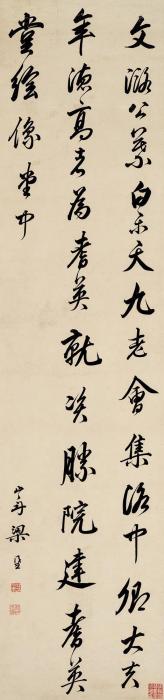 文潞公慕白乐天九老會集洛中卿大夫
年德高者為耆英就资勝院建耆英
堂繪像堂中
山舟梁同書